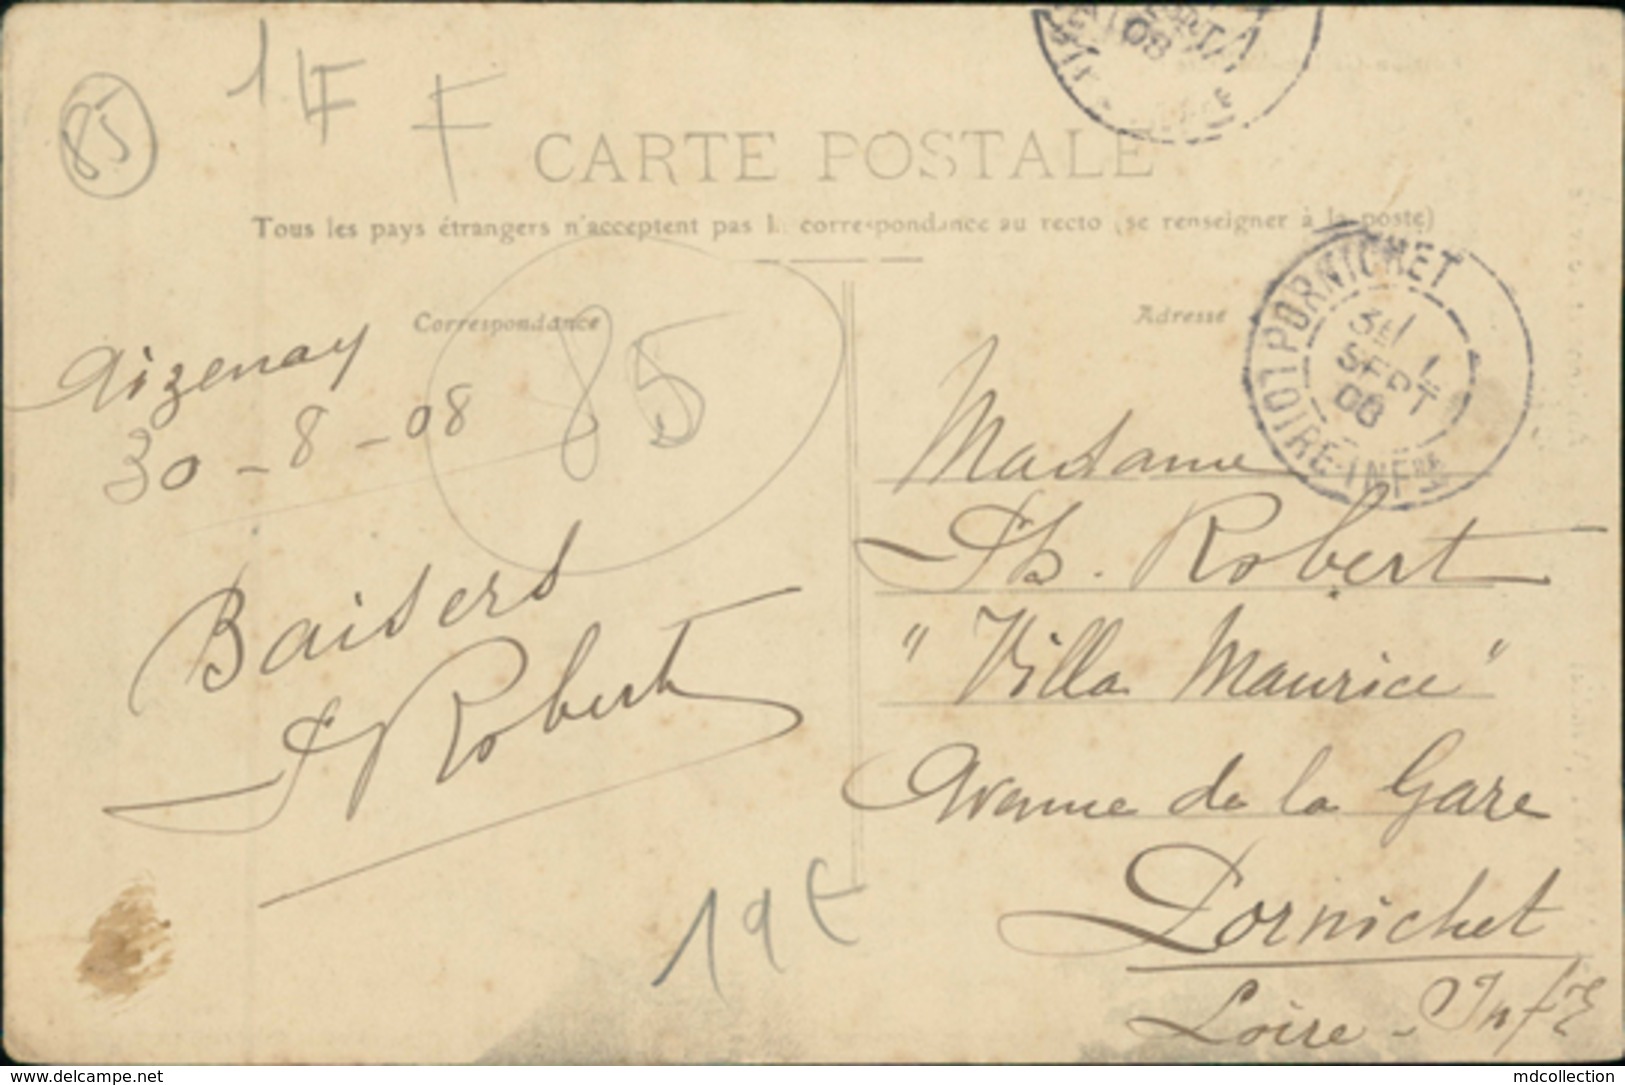 85
1 F
F
CARTE POSTALE
Tous les pays étrangers n'acceptent pas la correspondance au recto (se renseigner à la poste)
Correspondance
Aizenay
30-8-08
85
Baisers
Robert
19 €
Adresse
PORNICHET
SEPT
08
LOIRE-INFRE
Madame
Th. Robert
"Villa Maurice"
Avenue de la Gare
Pornichet
Loire-InfrE
www.delcampe.net
mdcollection